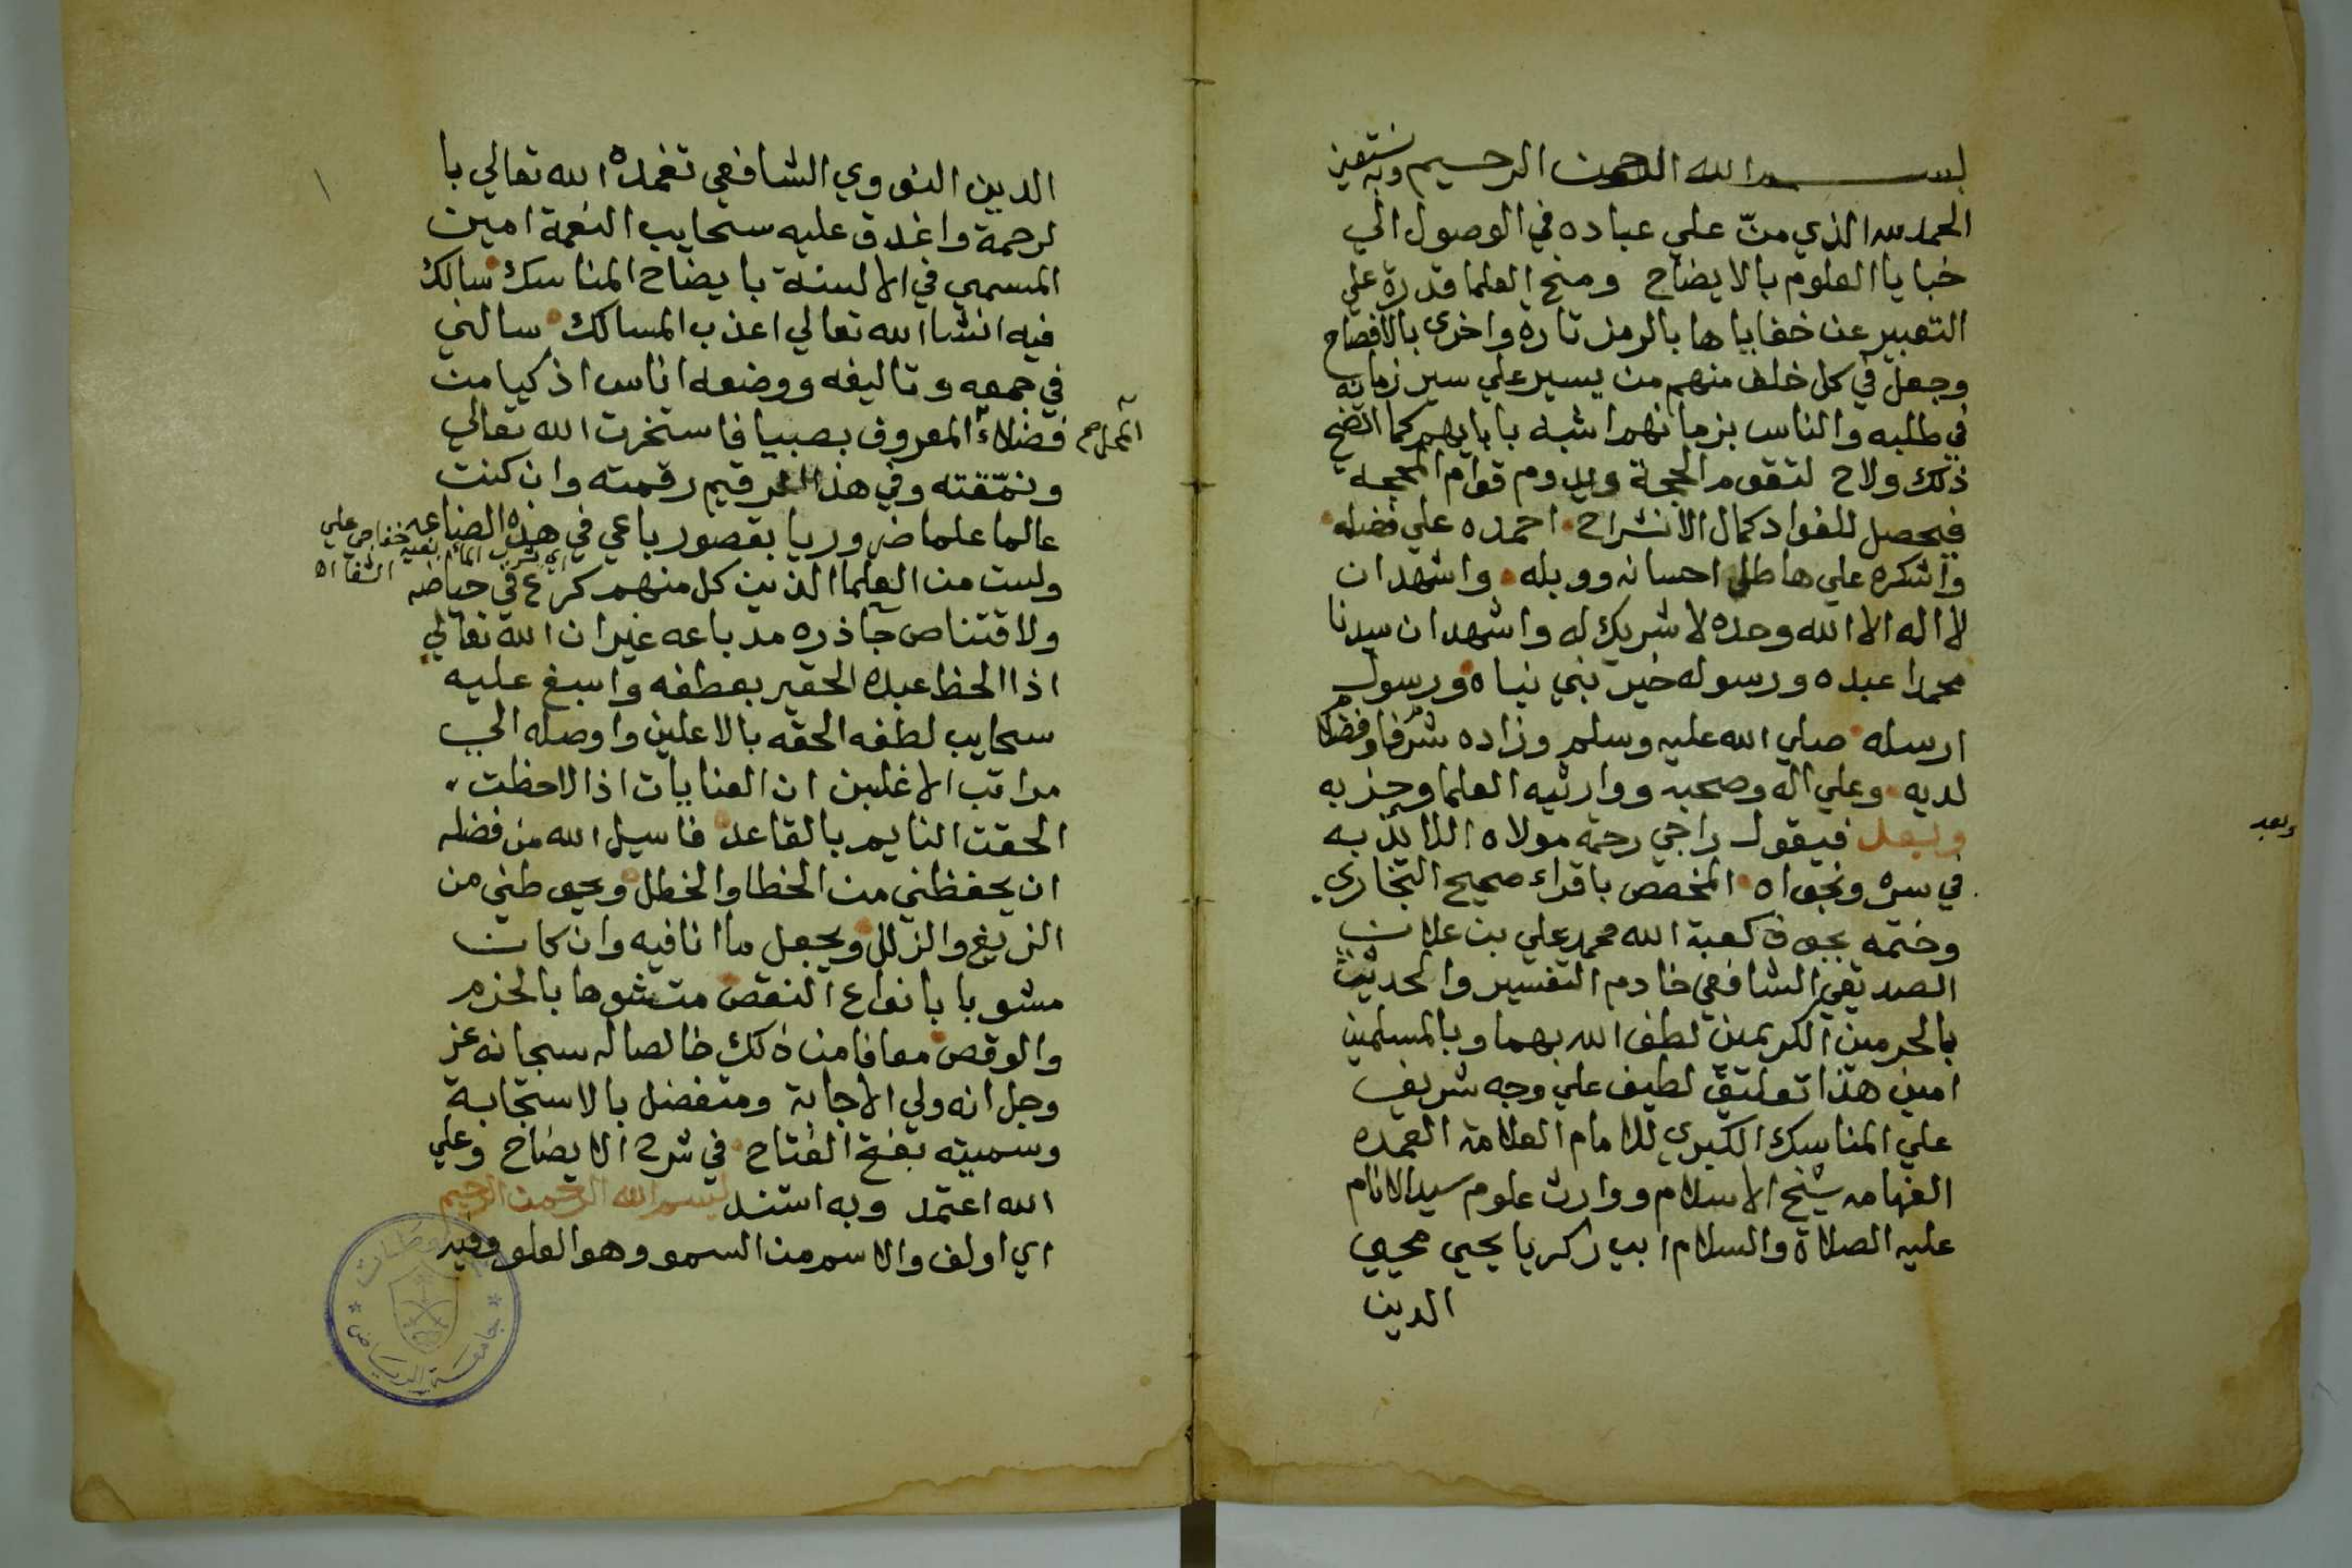 بسم الله الرحمن الرحيم وبه نستعين
الحمد لله الذي منّ علي عباده في الوصول الي
خبايا العلوم بالايضاح ومنح العلما قدرة علي
التعبير عن خفاياها بالرمز تارة واخري بالافصاح
وجعل في كل خلف منهم من يسير علي سير زمانه
في طلبه والناس بزمانهم اشبه بابايهم كما اتضح
ذلك ولاح لتقوم الحجة ويدوم قوام المحجة
فيحصل للفواد كمال الانشراح احمده علي فضله
واشكره علي هاطل احسانه ووبله واشهد ان
لا اله الا الله وحده لا شريك له واشهد ان سيدنا
محمدا عبده ورسوله خير نبي نباه ورسول
ارسله صلي الله عليه وسلم وزاده شرفا وفضلا
لديه وعلي اله وصحبه ووارثيه العلما وحزبه
وبعد فيقول راجي رحمة مولاه اللائذ به
في سره ونجواه المخصص باقراء صحيح البخاري
وختمه بجوف كعبة الله محمد علي بن علان
الصديقي الشافعي خادم التفسير والحديث
بالحرمين الكريمين لطف الله بهما وبالمسلمين
امين هذا تعليق لطيف علي وجه شريف
علي المناسك الكبري للامام العلامة العمده
الفهامه شيخ الاسلام ووارث علوم سيد الانام
عليه الصلاة والسلام ابي زكريا يحيي محيي
الدين
وبعد
الدين النووي الشافعي تغمده الله تعالي با
لرحمة واغدق عليه سحايب النعمة امين
المسمي في الالسنة بايضاح المناسك سالك
فيه انشا الله تعالي اعذب المسالك سالني
في جمعه وتاليفه ووضعه اناس اذكيا من
فضلاء المعروف بصبيا فاستخرت الله تعالي
ونمّقته وفي هذا الرقيم رقمته وان كنت
عالما علما ضروريا بقصور باعي في هذه الصناعه
ولست من العلما الذين كل منهم كرع في حياضه
ولاقتناص جآذره مد باعه غير ان الله تعالي
اذا الحظ عبده الحقير بعطفه واسبغ عليه
سحايب لطفه الحقه بالاعلين واوصله الي
مراتب الاغلين ان العنايات اذا لاحظت
الحقت النايم بالقاعد فاسيل الله من فضله
ان يحفظني من الخطا والخطل ويحوطني من
الزيغ والزلل ويجعل ما انا فيه وان كان
مشوبا بانواع النقص متشوها بالخزم
والوقص معافا من ذلك خالصا له سبحانه عز
وجل انه ولي الاجابة ومتفضل بالاستجابة
وسميته بفتح الفتاح في شرح الايضاح وعلي
الله اعتمد وبه استند بسم الله الرحمن الرحيم
اي اولف والاسم من السمو وهو العلو وقيل
جامعة الرياض